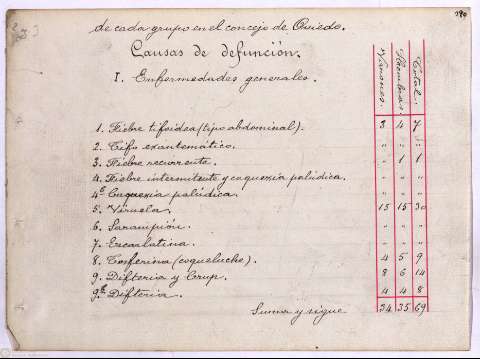 de cada grupo en el concejo de Oviedo.
Causas de defunción.
I. Enfermedades generales.
Varones. Hembras. Total.
1. Fiebre tifoidea (tipo abdominal). 3 4 7
2. Tifo exantemático. " " "
3. Fiebre recurrente. " 1 1
4. Fiebre intermitente y caquexia palúdica. " " "
4ª Caquexia palúdica. " " "
5. Viruela. 15 15 30
6. Sarampión. " " "
7. Escarlatina. " " "
8. Tosferina (coqueluche). 4 5 9
9. Difteria y Crup. 8 6 14
9ª Difteria. 4 4 8
Suma y sigue 34 35 69